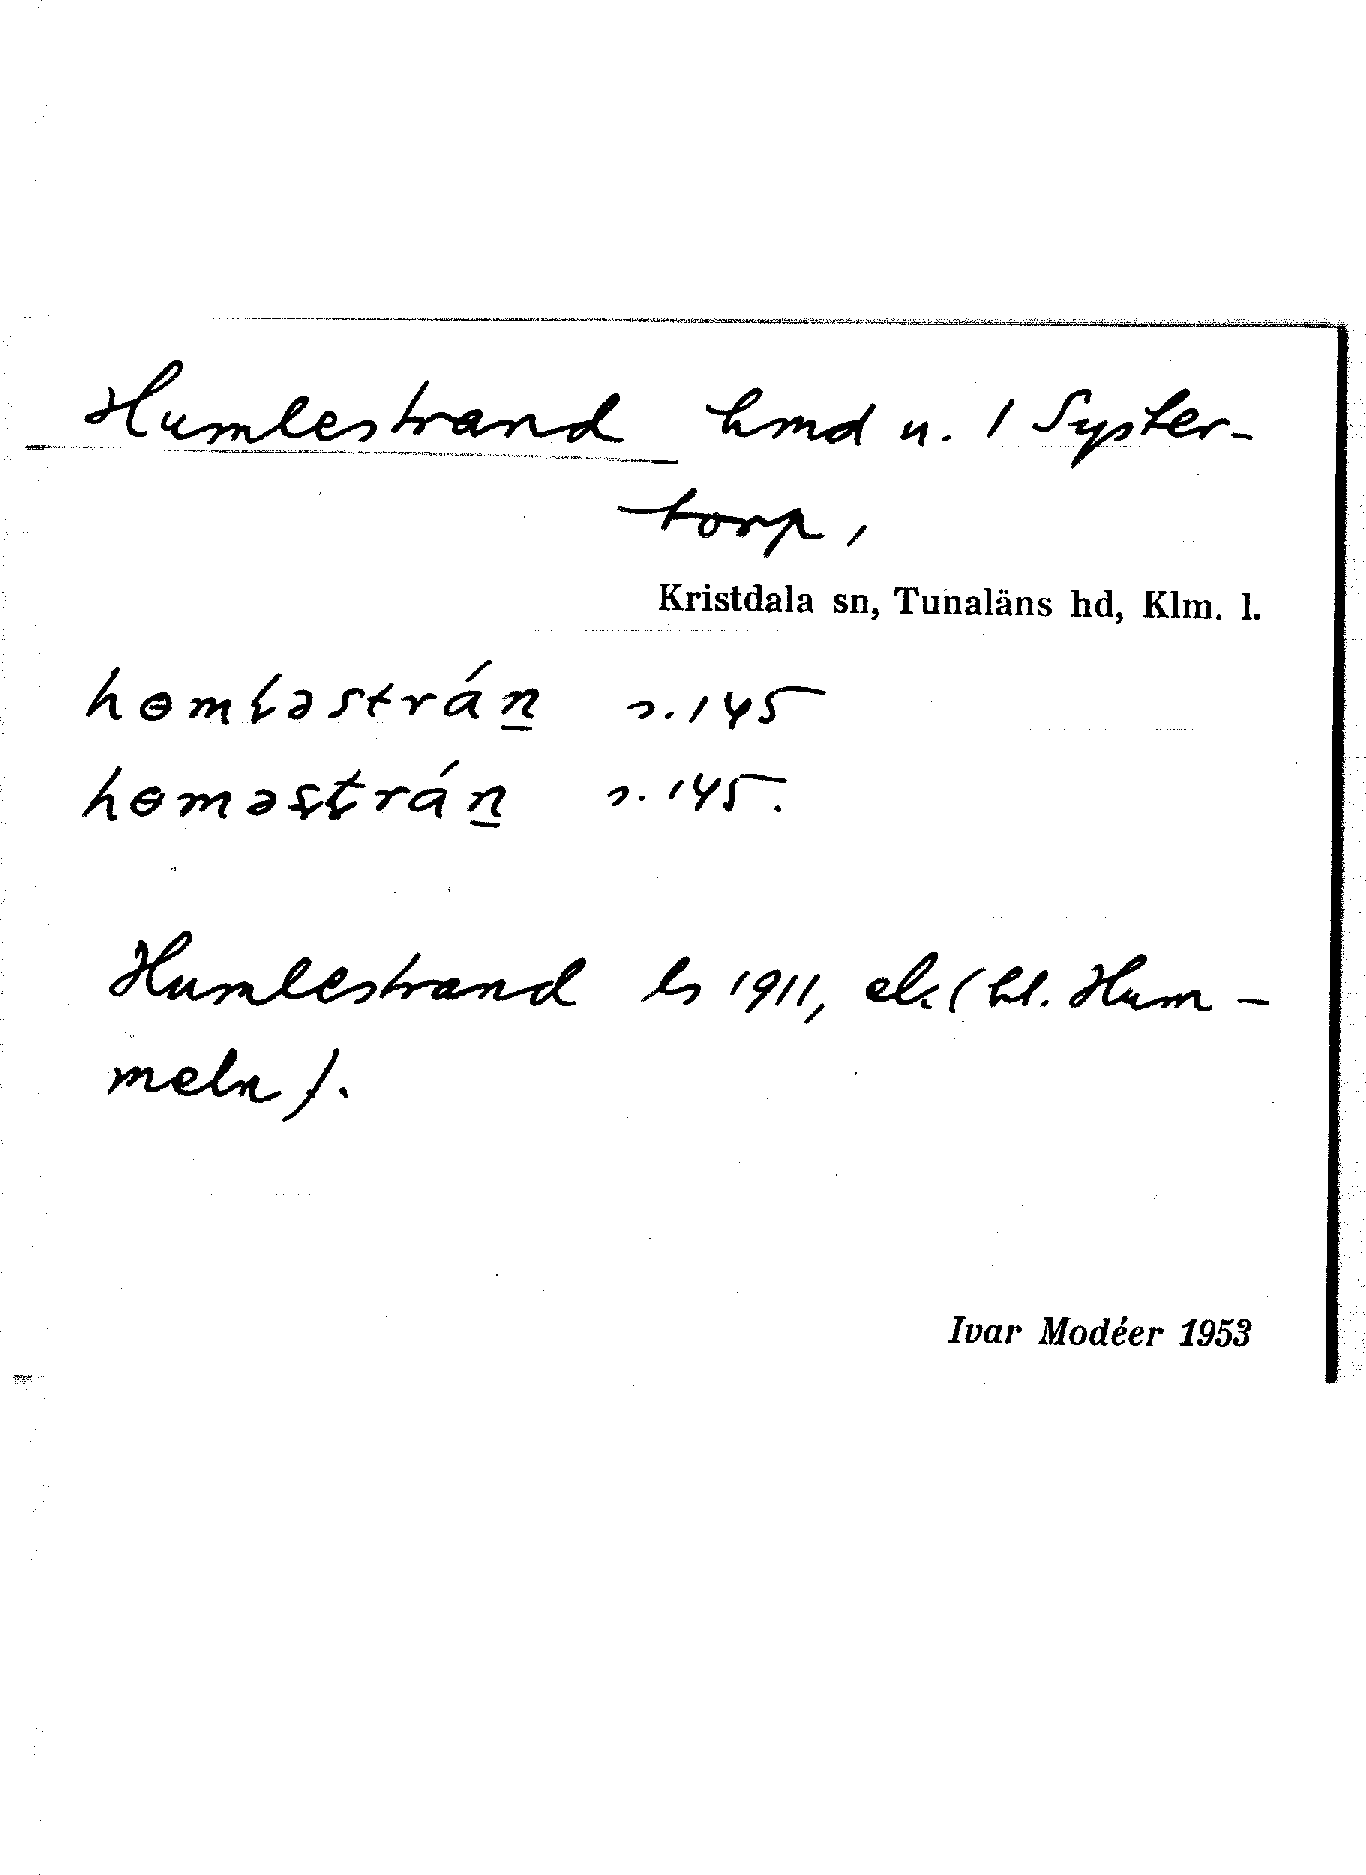 Humlestrand hmd u. 1 Syster-
torp,
Kristdala sn, Tunaläns hd, Klm. l.
hɵmləstrán s. 145
hɵməstrán s. 145.
Humlestrand ls 1911, ek. (bl. Hum-
meln).
Ivar Modéer 1953